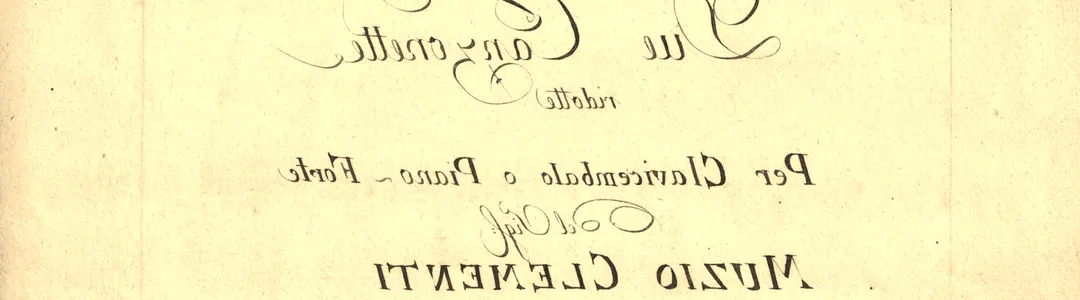 Due Canzonette
ridotte
Per Clavicembalo o Piano~Forte
Del Sigr
MUZIO CLEMENTI